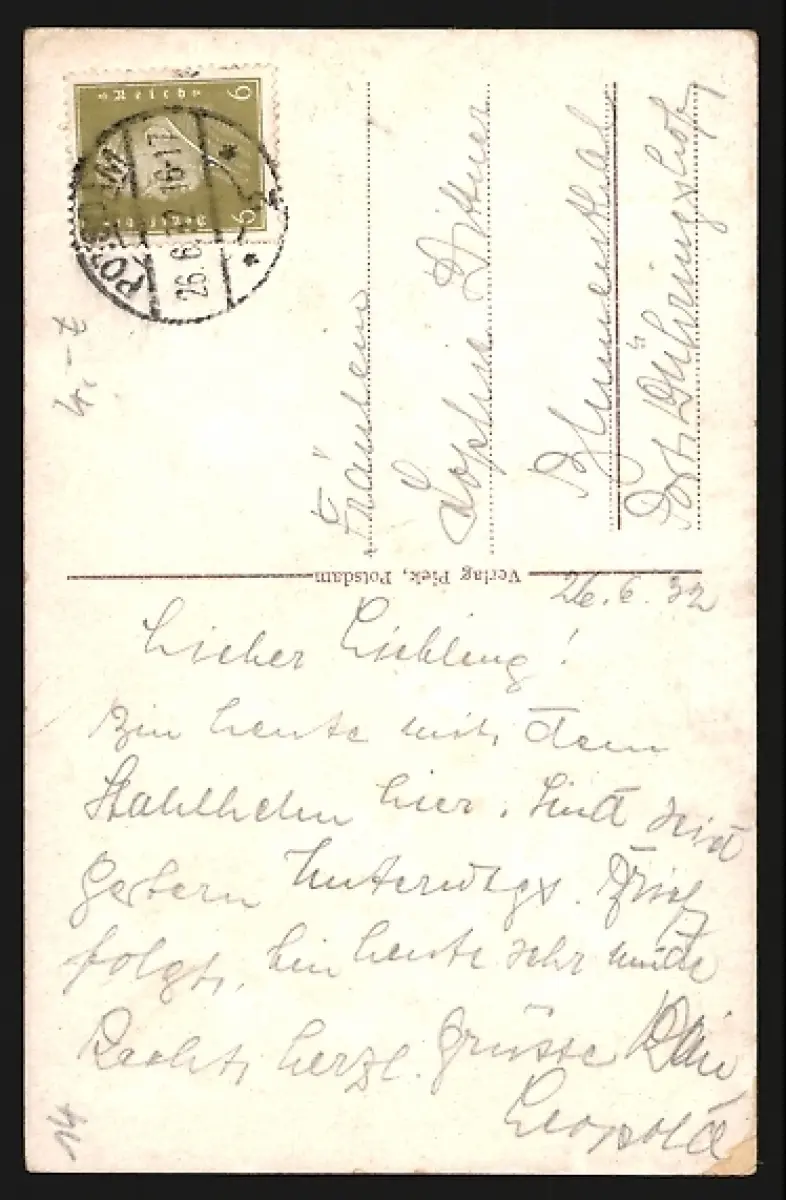 26.6.32
Lieber Liebling!
Bin heute mit dem
Stahlhelm hier. Sind seid
gestern Unterwegs. Brief
folgt, bin heute sehr müde
Recht herzl. Grüsse Dein
Leopold
Fräulein
Sophie Dittner
Blumenthal
Post Dühringshof
Verlag Piek, Potsdam
POTSDAM
26.6. 16-17
Deutsches
Reich
6 6
4.-
14